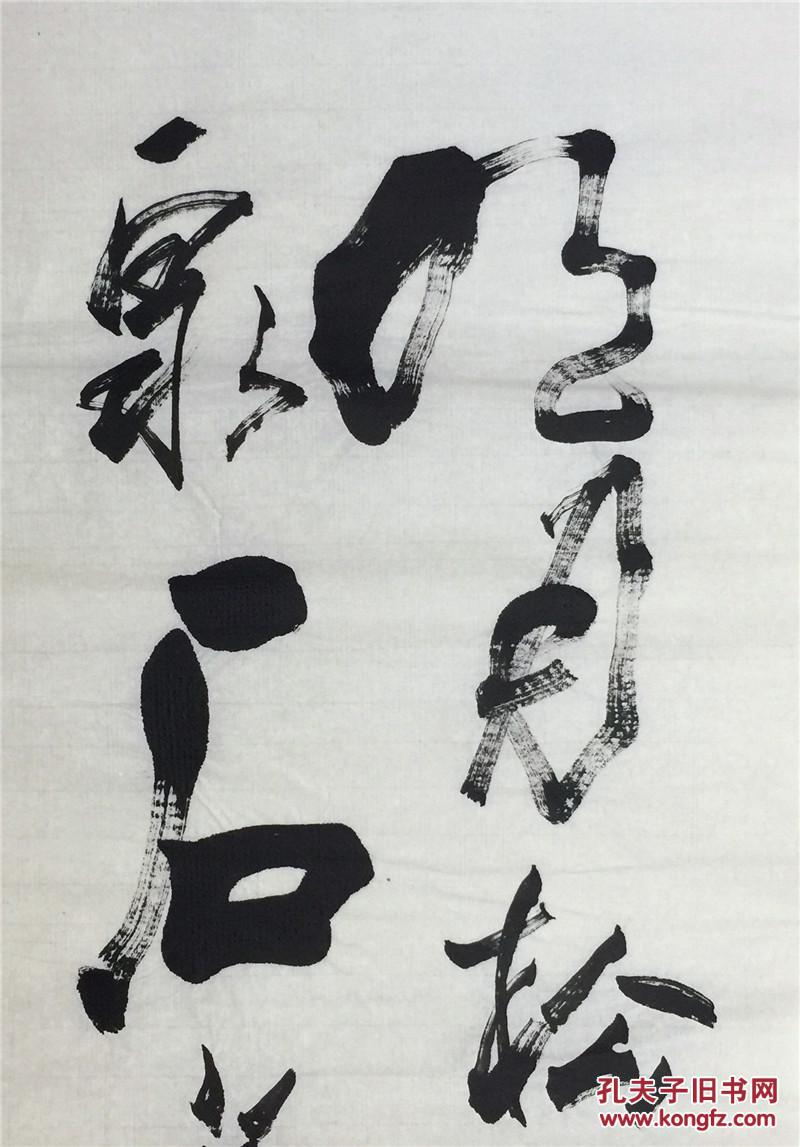 明月松
泉石
孔夫子旧书网
www.kongfz.com